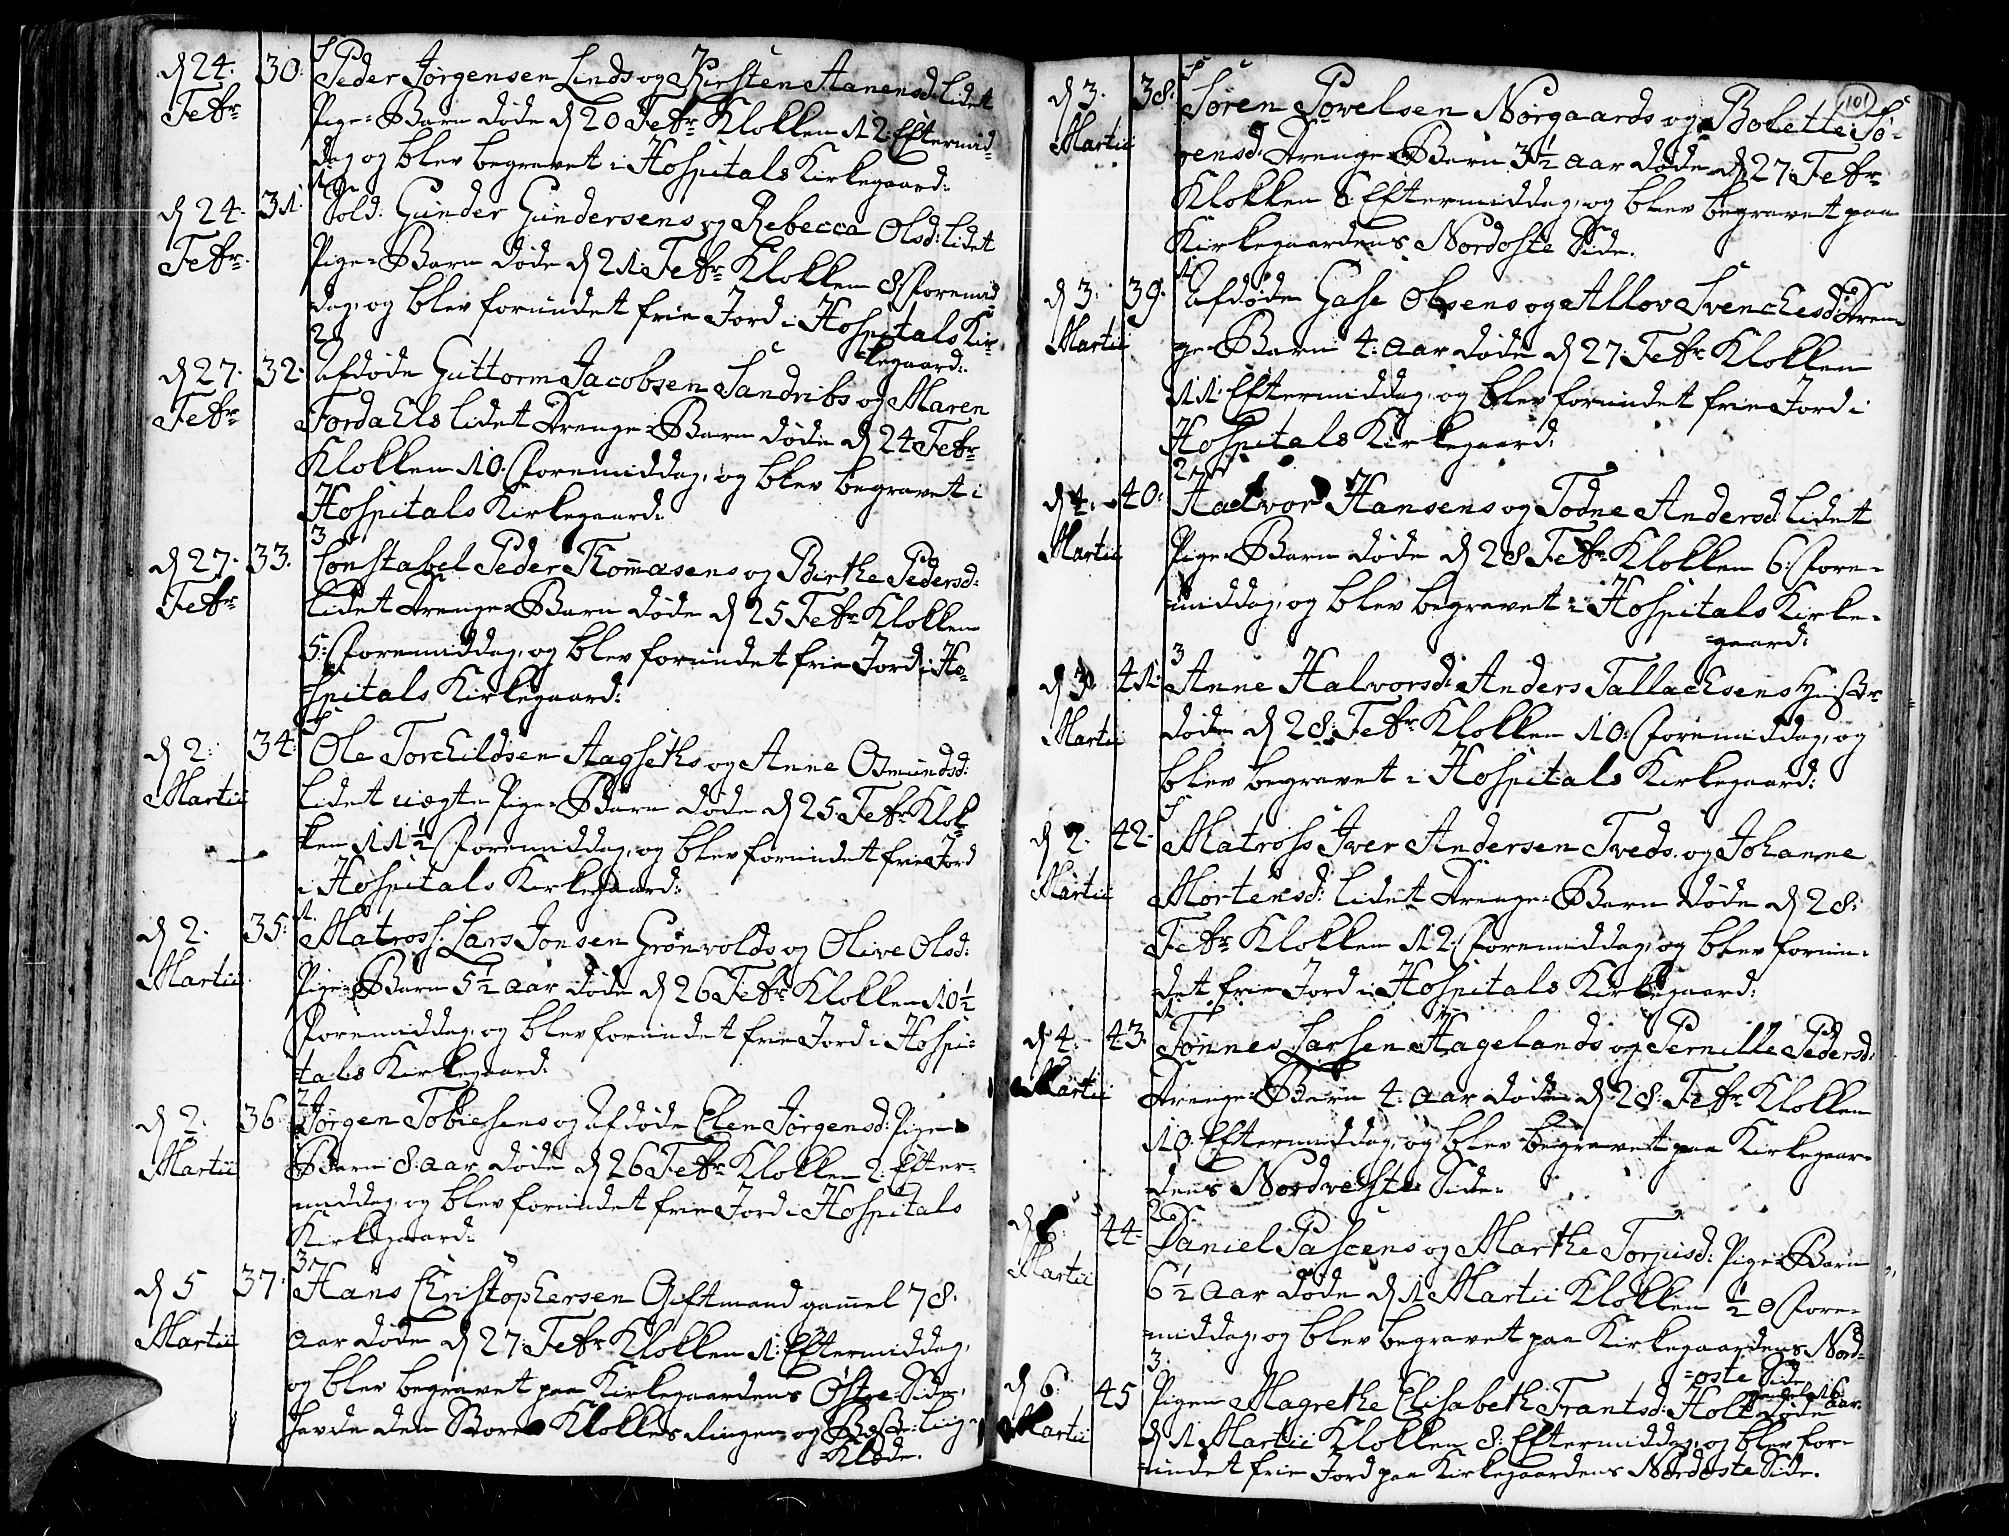 d 24. 30. Peder Jørgensen Linds og Kirsten Aanensd: lidet
Febr Pige-Barn døde d 20 Febr Klokken 12 Eftermid-
dag og blev begravet i Hospitals Kirkegaard.
1
d 24. 31. Sold: Gunder Gundersens og Rebecca Olsd: lidet
Febr. Pige-Barn døde d 21 Febr Klokken 8 Formid
dag, og blev forundet frie Jord i Hospitals Kir-
=kegaard:
2
d 27. 32. Afdøde Guttorm Jacobsen Sandribs og Maren
Febr Tordaels lidet Drenge-Barn døde d 24 Febr
Klokken 10 Formiddag, og blev begravet i
Hospitals Kirkegaard:
3
d 27. 33. Constabel Peder Thomasens og Birthe Pedersd:
Febr lidet Drenge-Barn døde d 25 Febr Klokken
5: Formiddag, og blev forundet frie Jord i Ho-
spitals Kirkegaard:
d 2. 34. Ole Torchildsen Aagseths og Anne Osmundsd:
Martii lidet uægte Pige-Barn døde d 25 Febr Klok-
ken 11½ Formiddag, og blev forundet frie Jord
i Hospitals Kirkegaard:
1.
d 2. 35. Matross Lars Jonsen Grønvolds og Olive Olsd:
Martii. Pige-Barn 5½ aar døde d 26 Febr Klokken 10½
Formiddag, og blev forundet frie Jord i Hospi-
tals Kirkegaard:
2
d 2. 36. Jørgen Tobiesens og Afdøde Elen Jørgensd: Pige-
Martii Barn 8. aar døde d 26 Febr Klokken 2. Efter-
middag, og blev forundet frie Jord i Hospitals
Kirkegaard:
3
d 5 37. Hans Christophersen Giftmand gamel 78.
Martii aar døde d 27 Febr Klokken 1. Eftermiddag,
og blev begravet paa Kirkegaardens Østre Side,
havde den Store Klokkes Ringen og Liig-
=Klæde.
101
d 3. 38. Søren Powelsen Nørgaards og Bolette Sø-
Martii rensd: Drenge-Barn 3½ aar døde d 27 Febr
Klokken 8 Eftermiddag, og blev begravet paa
Kirkegaardens Nordoste Side.
1
d 3. 39. Afdøde Gase Olsens og Allov Svenchesd: Dren-
Martii ge-Barn 4: aar døde d 27. Febr Klokken
11 Eftermiddag, og blev forundet frie Jord i
Hospitals Kirkegaard:
2
d 4. 40. Halvor Hansens og Todne Andersd: lidet
Martii Pige-Barn døde d 28 Febr Klokken 6. Fore-
middag, og blev begravet i Hospitals Kirke-
=gaard:
3
d 3. 41. Anne Halvorsd: Anders Tallachsens Hustr
Martii døde d 28. Febr Klokken 10. Formiddag, og
blev begravet i Hospitals Kirkegaard:
d 2. 42. Matross Iver Andersen Tveds og Johanne
Martii Mortensd: lidet Drenge-Barn døde d 28.
Febr Klokken 12. Formiddag, og blev forun-
det frie Jord i Hospitals Kirkegaard:
1
d 4. 43. Tønnes Larsen Hagelands og Pernille Pedersd:
Martii Drenge-Barn 4. aar døde d 28. Febr Klokken
10. Eftermiddag, og blev begravet paa Kirkegaar-
dens Nordveste Side.
2
d 6. 44. Daniel Pascens og Marthe Torjusd: Pige-Barn
Martii 6½ aar døde d 1 Martii Klokken ½ 0 Fore-
middag, og blev begravet paa Kirkegaardens Nord-
=oste Side
3.
d 6. 45 Pigen Magrethe Elisabeth Frantsd: Holt gamel 16 aar døde
Martii d 1 Martii Klokken 8. Eftermiddag, og blev for-
undet frie Jord paa Kirkegaardens Nordoste Side.